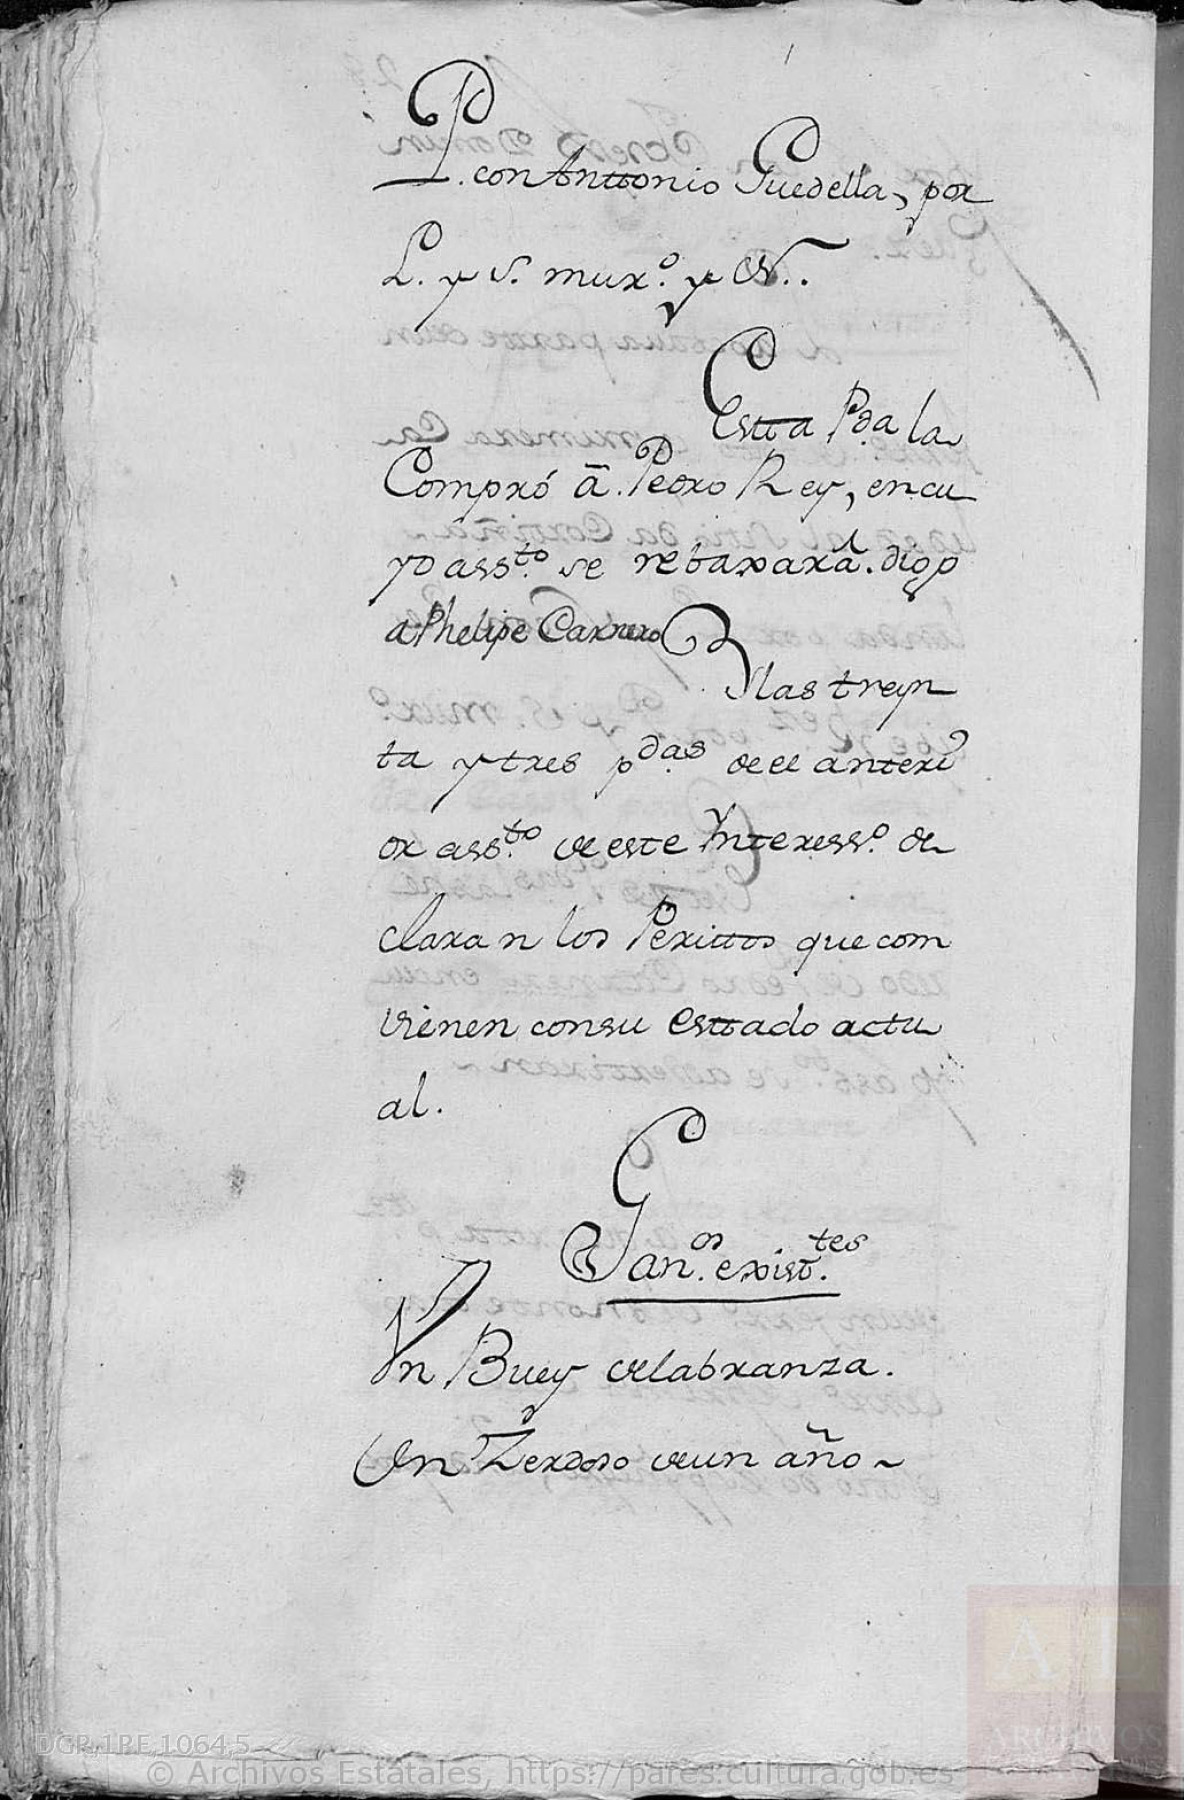 P. con Anttonio Guedella, por
L. y S. mur.º y N..
Estta P.da la
Compró â. Pedro Rey, en cu
yo ass.to se rebaxará. digo
a Phelipe Carnero
las treyn
ta y tres p.das de el anteri
or ass.to de este Ynteress.º de
claran los Perittos que com
vienen con su esttado actu
al.
Gan.os exist.tes
Un Buey de labranza.
Un Zerdoso de un año~
DGP,1RE,1064,5
© Archivos Estatales, https://pares.cultura.gob.es
A E
ARCHIVOS